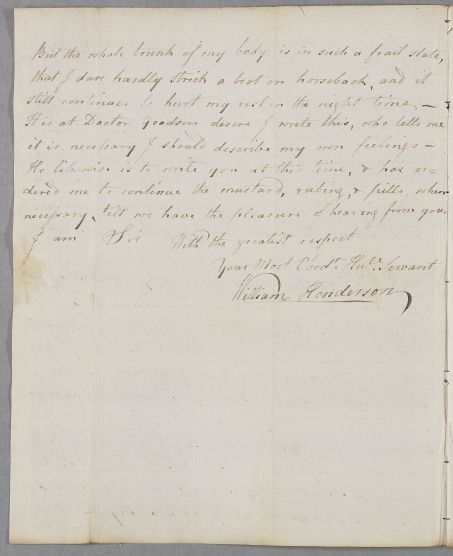 But the whole trunk of my body is in such a frail state,
that I dare hardly strick a trot on horseback, and it
still continues to hurt my rest in the night time, —
It is at Doctor Goodsirs desire I write this, who tells me
it is necessary I should describe my own feelings —
He likewise is to write you at this time, & has or=
dered me to continue the mustard, rubing, & pills, when
necessary, till we have the pleasure of hearing from you,
I am Sir With the greatest respect
Your Most Obedt. Hule. Servant
William Henderson